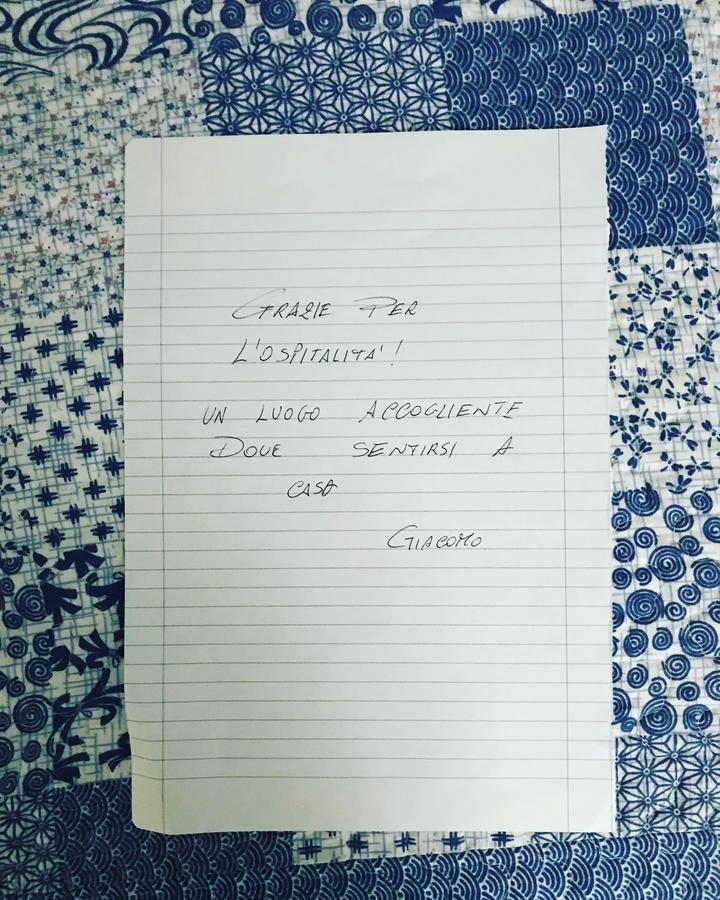 GRAZIE PER
L'OSPITALITA'!
UN LUOGO ACCOGLIENTE
DOVE SENTIRSI A
CASA
GIACOMO